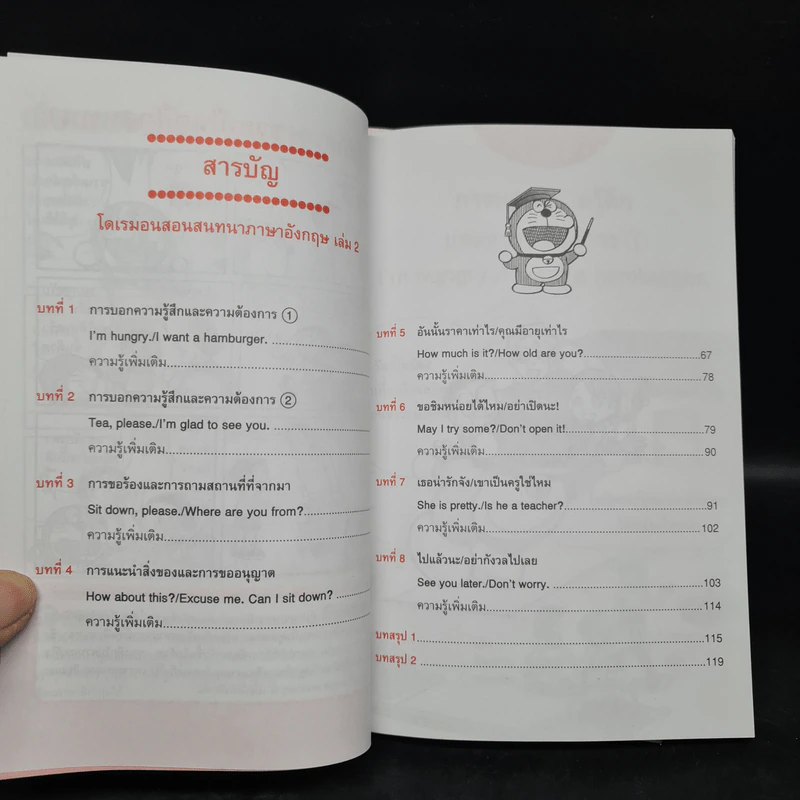 สารบัญ
โดเรมอนสอนสนทนาภาษาอังกฤษ เล่ม 2
บทที่ 1 การบอกความรู้สึกและความต้องการ ①
I'm hungry./I want a hamburger. ..................
ความรู้เพิ่มเติม..................
บทที่ 2 การบอกความรู้สึกและความต้องการ ②
Tea, please./I'm glad to see you. ..................
ความรู้เพิ่มเติม..................
บทที่ 3 การขอร้องและการถามสถานที่ที่จากมา
Sit down, please./Where are you from?..................
ความรู้เพิ่มเติม..................
บทที่ 4 การแนะนำสิ่งของและการขออนุญาต
How about this?/Excuse me. Can I sit down? ..........
ความรู้เพิ่มเติม..................
บทที่ 5 อันนั้นราคาเท่าไร/คุณมีอายุเท่าไร
How much is it?/How old are you?..................67
ความรู้เพิ่มเติม..................78
บทที่ 6 ขอชิมหน่อยได้ไหม/อย่าเปิดนะ!
May I try some?/Don't open it!..................79
ความรู้เพิ่มเติม..................90
บทที่ 7 เธอน่ารักจัง/เขาเป็นครูใช่ไหม
She is pretty./Is he a teacher?..................91
ความรู้เพิ่มเติม..................102
บทที่ 8 ไปแล้วนะ/อย่ากังวลไปเลย
See you later./Don't worry. ..................103
ความรู้เพิ่มเติม..................114
บทสรุป 1..................115
บทสรุป 2 ..................119